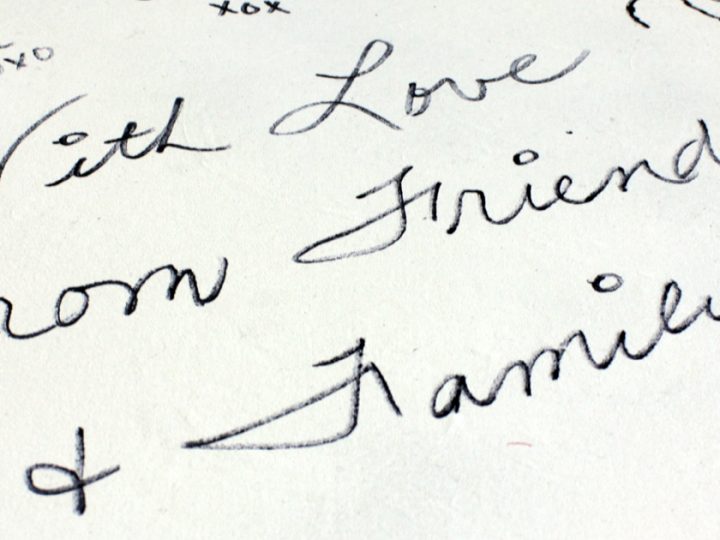 xox
oxo
With Love
from Friend
& Famili